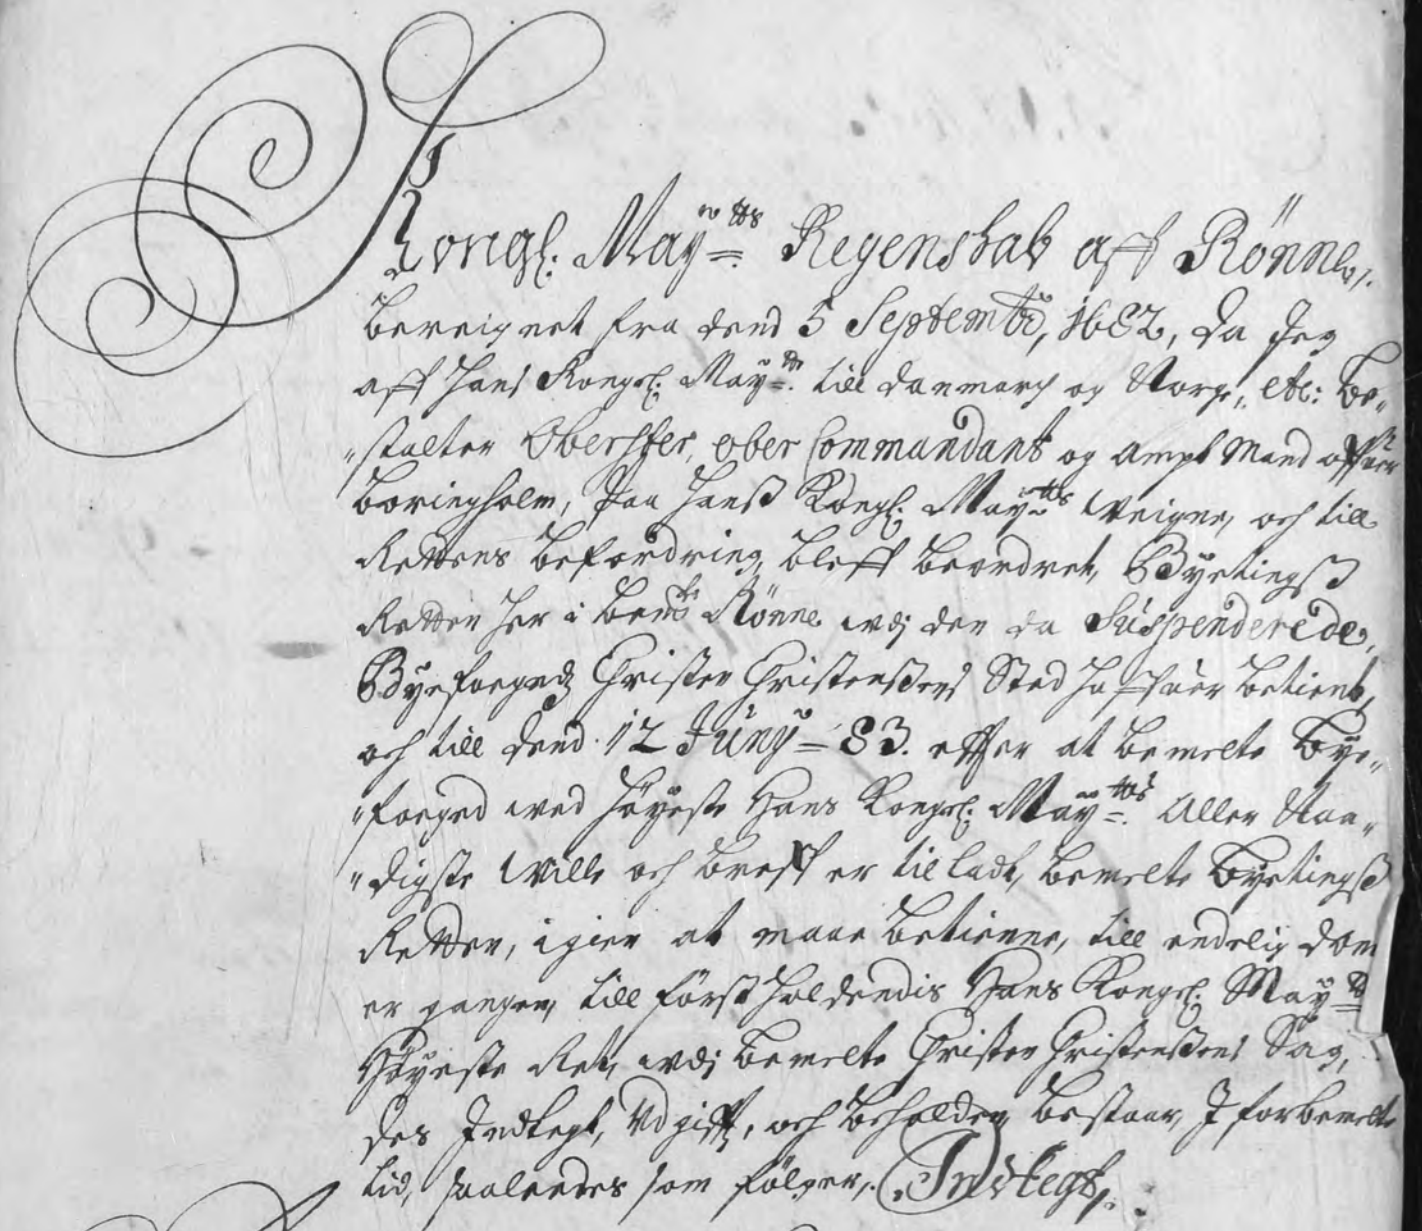 Kongl: May:tts Regenskab aff Rönne,
bereignet fra dend 5 Septembr, 1682, da Jeg
aff Hans Kongel: May:tt till Danmarch og Norge, etc: be„
„stalter Oberster, ober Commandant og Ampt Mand offuer
Boringholm, paa Hanß Kongl: May:tts Weigne, och till
Rettens befordring, bleff beordret, Byetingß
Retten her i bemte Rönne udj den da Suspenderede,
Byefogedz Christen Christenßens Sted Haffuer betient,
och till dend 12 Juny = 83. effter at bemelte bye„
„foeged wed höyeste Hans Kongel: May:tts Aller Naa„
„digste Wille och breff er tilladt, bemelte byetingß
Retten, igien at maae betienne, till endelig dom
er gangen, till först holdendis Hans Kongel: May:tts
Höyeste Ret, udj bemelte Christen Christenßens Sag,
des Indtegt, Udgifft, och beholden bestaar, J forbemelte
tid, saaleedes som fölger, Indtegt,